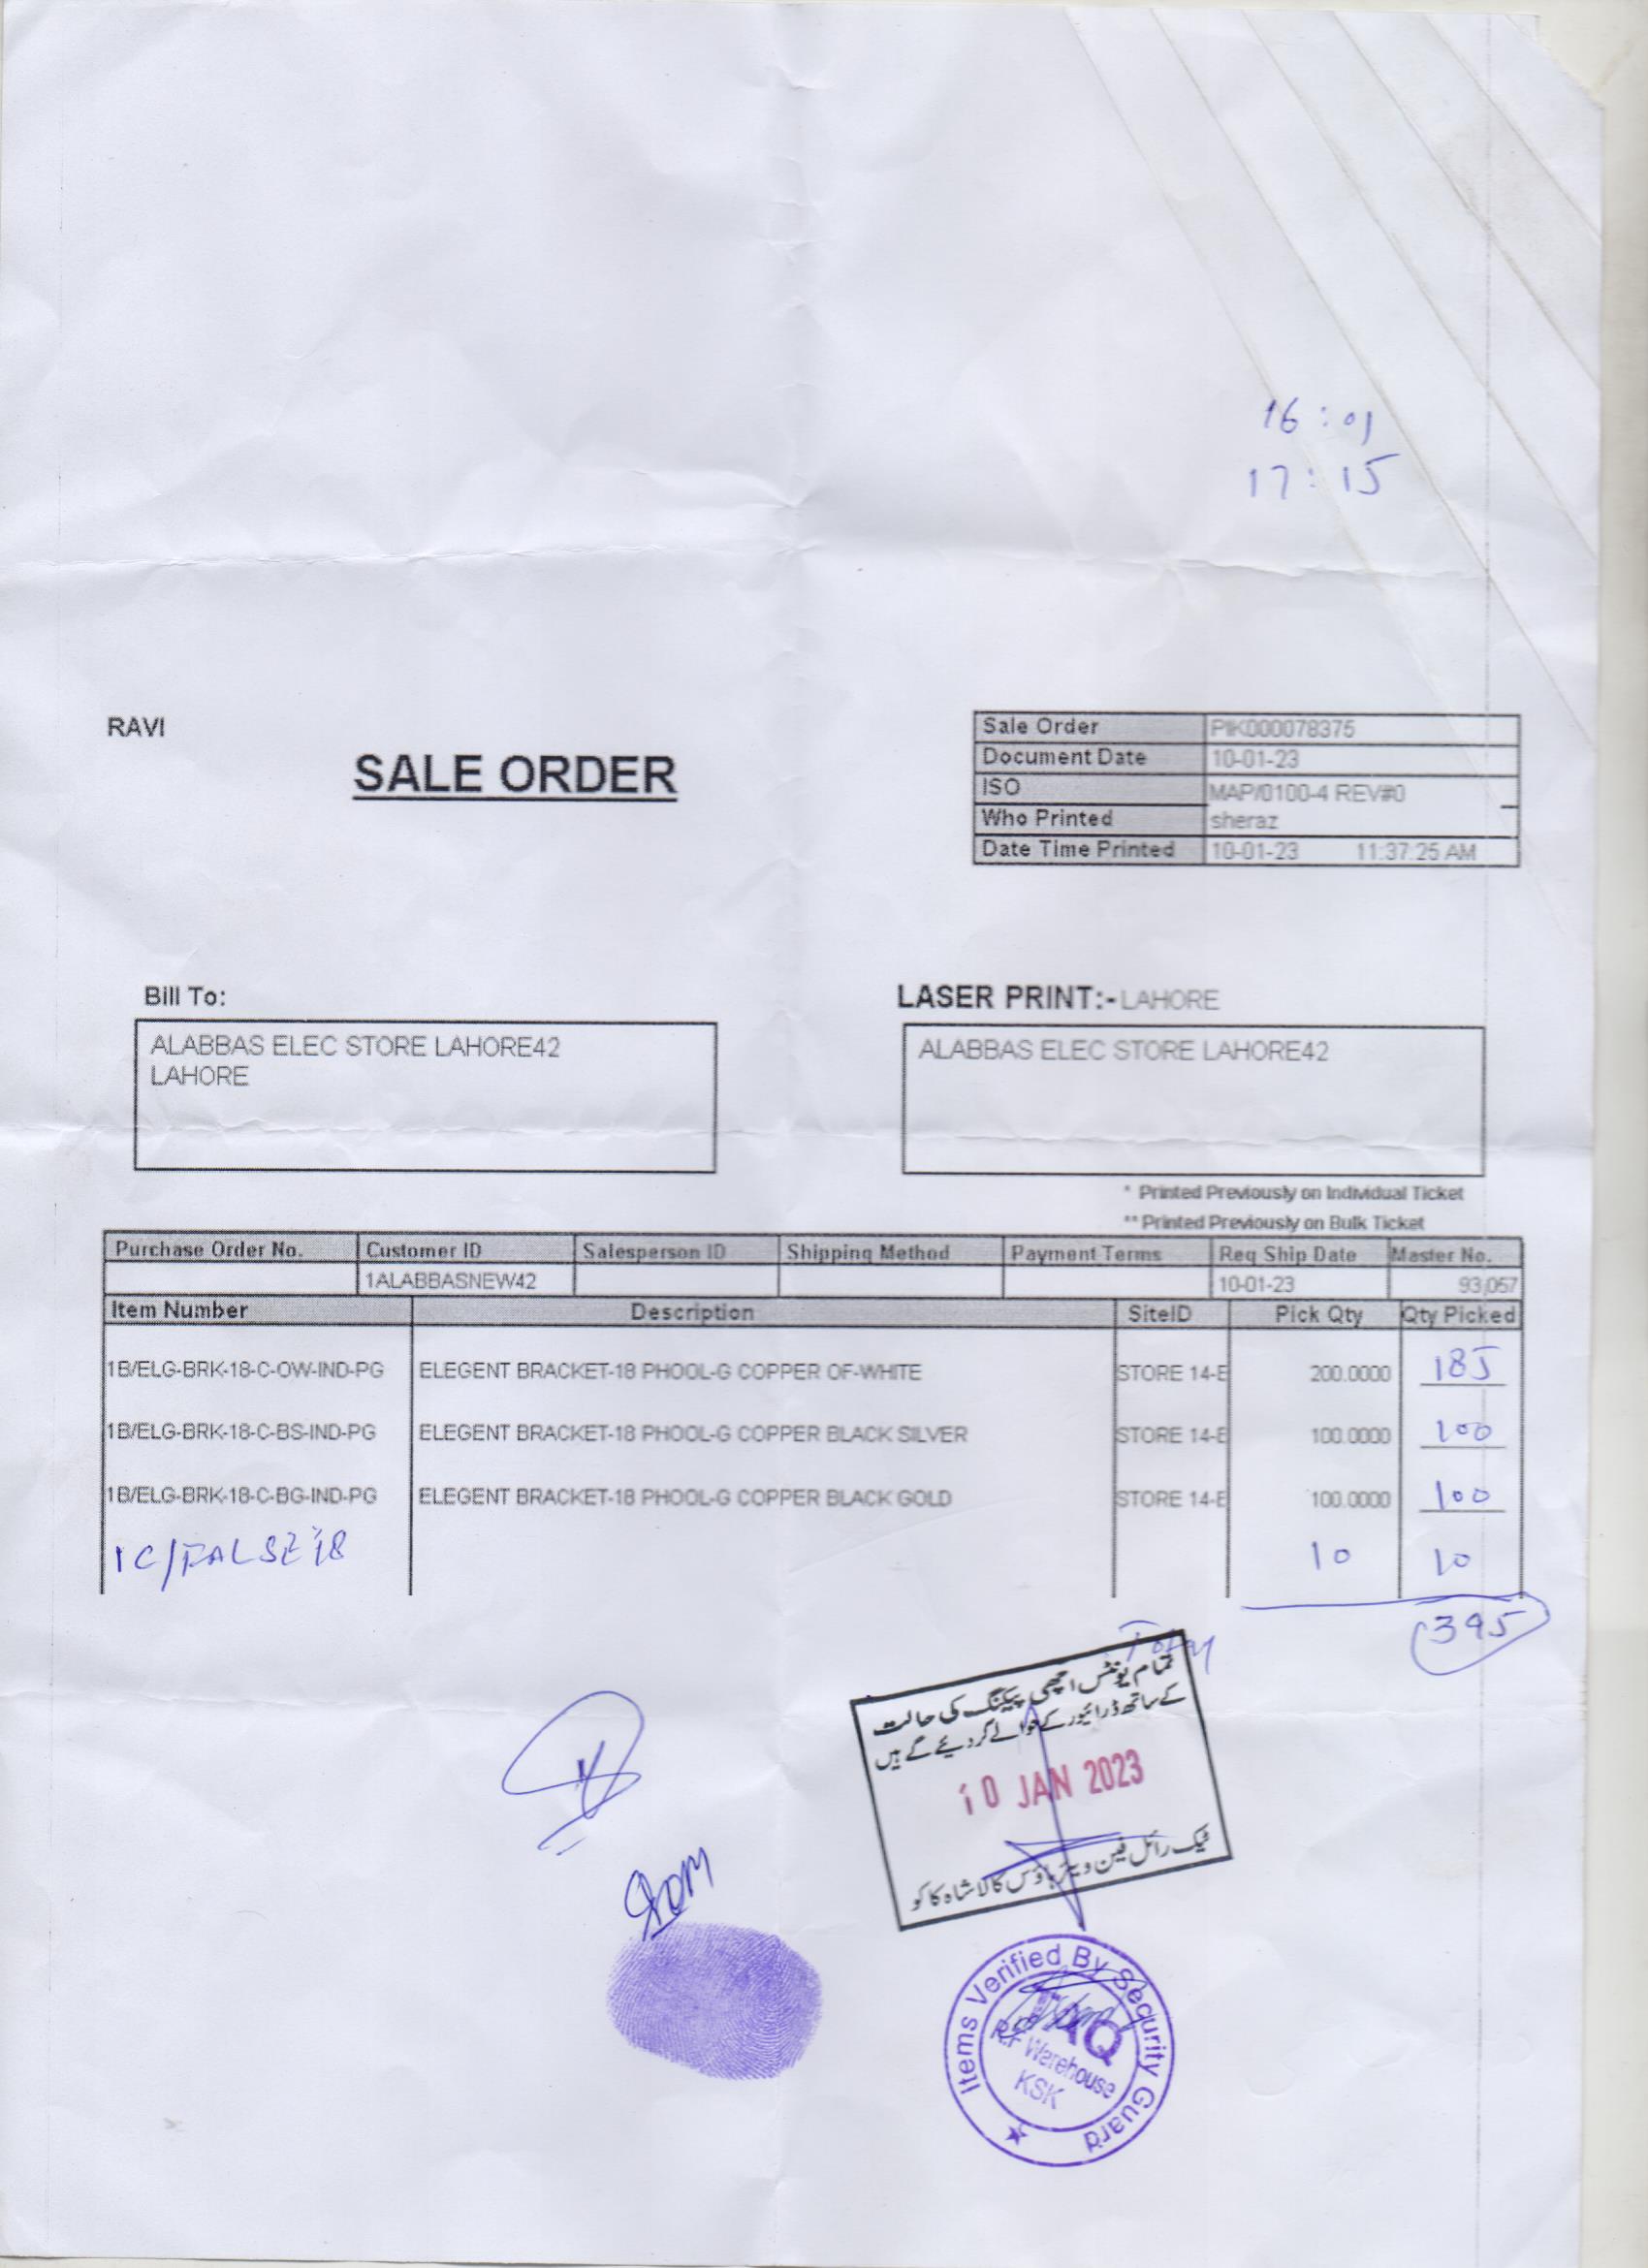 16:01
17:15
RAVI
SALE ORDER
Sale Order PIK000078375
Document Date 10-01-23
ISO MAP/0100-4 REV#0
Who Printed sheraz
Date Time Printed 10-01-23 11:37:25 AM
Bill To:
LASER PRINT:- LAHORE
ALABBAS ELEC STORE LAHORE42
LAHORE
ALABBAS ELEC STORE LAHORE42
* Printed Previously on Individual Ticket
** Printed Previously on Bulk Ticket
Purchase Order No. Customer ID Salesperson ID Shipping Method Payment Terms Req Ship Date Master No.
1ALABBASNEW42 10-01-23 93,057
Item Number Description SiteID Pick Qty Qty Picked
1B/ELG-BRK-18-C-OW-IND-PG ELEGENT BRACKET-18 PHOOL-G COPPER OF-WHITE STORE 14-E 200.0000 185
1B/ELG-BRK-18-C-BS-IND-PG ELEGENT BRACKET-18 PHOOL-G COPPER BLACK SILVER STORE 14-E 100.0000 100
1B/ELG-BRK-18-C-BG-IND-PG ELEGENT BRACKET-18 PHOOL-G COPPER BLACK GOLD STORE 14-E 100.0000 100
1C/FALSE 18 10 10
395
تمام یونٹس اچھی پیکنگ کی حالت
کے ساتھ ڈرائیور کے حوالے کر دیئے گے ہیں
10 JAN 2023
ٹیک رائل فین ویئر ہاؤس کالا شاہ کاکو
Items Verified By Security Guard
TAQ
R.F Warehouse
KSK